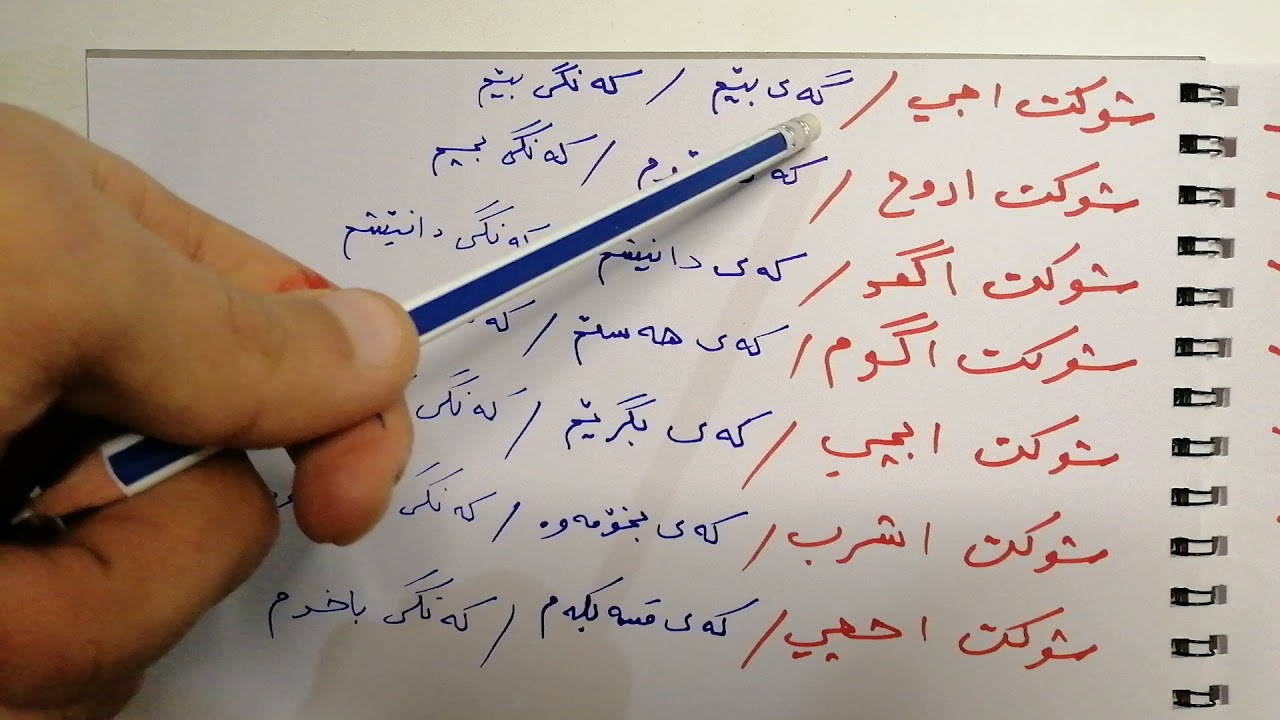 شوكت اجي / كەی بێم / كەنگێ بێم
شوكت اروح / كەی / كەنگێ بچم
شوكت اگعد / كەی دانیشم / كەنگێ دانیشم
شوكت اگوم / كەی هەستم /
شوكت ابچي / كەی بگریم / كەنگێ
شوكت اشرب / كەی بخۆمەوە / كەنگێ
شوكت احچي / كەی قسە بكەم / كەنگێ باخڤم